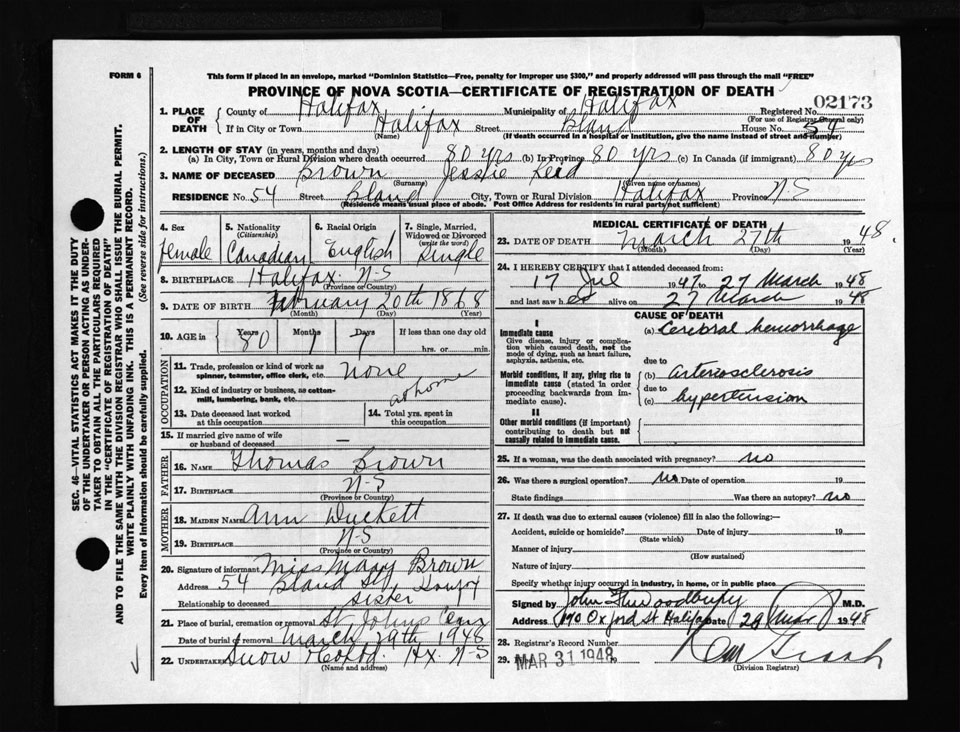 FORM 6
This form if placed in an envelope, marked "Dominion Statistics—Free, penalty for improper use $300," and properly addressed will pass through the mail "FREE"
PROVINCE OF NOVA SCOTIA—CERTIFICATE OF REGISTRATION OF DEATH
02173
1. PLACE OF DEATH
County of Halifax Municipality of Halifax Registered No.
(For use of Registrar General only)
If in City or Town Halifax Street Bland House No. 54
(Name) (If death occurred in a hospital or institution, give the name instead of street and number)
2. LENGTH OF STAY (in years, months and days)
(a) In City, Town or Rural Division where death occurred 80 yrs (b) In Province 80 yrs (c) In Canada (if immigrant) 80 yrs
3. NAME OF DECEASED Brown Jessie
(Surname) (Given name or names)
RESIDENCE No. 54 Street Bland City, Town or Rural Division Halifax Province N-S
(Residence means usual place of abode. Post Office Address for residents in rural parts not sufficient)
4. Sex
Female
5. Nationality
(Citizenship)
Canadian
6. Racial Origin
English
7. Single, Married, Widowed or Divorced
(write the word)
Single
8. BIRTHPLACE Halifax N-S
(Province or Country)
9. DATE OF BIRTH February 20th 1868
(Month) (Day) (Year)
10. AGE in Years Months Days If less than one day old
80 1 7 hrs. or min.
OCCUPATION
11. Trade, profession or kind of work as
spinner, teamster, office clerk, etc. none
12. Kind of industry or business, as cotton-
mill, lumbering, bank, etc. at home
13. Date deceased last worked
at this occupation
14. Total yrs. spent in
this occupation
15. If married give name of wife
or husband of deceased —
FATHER
16. NAME Thomas Brown
17. BIRTHPLACE N-S
(Province or Country)
MOTHER
18. MAIDEN NAME Ann Duckett
19. BIRTHPLACE N-S
(Province or Country)
20. Signature of informant Miss Mary Brown
Address 54 Bland St
Relationship to deceased sister
21. Place of burial, cremation or removal St Johns Cem
Date of burial or removal March 29th 1948
22. Undertaker Snow Hx. N-S
(Name and address)
MEDICAL CERTIFICATE OF DEATH
23. DATE OF DEATH March 27th 1948.
(Month) (Day) (Year)
24. I HEREBY CERTIFY that I attended deceased from:
17 Jul 1947 to 27 March 1948
and last saw h er alive on 27 March 1948
CAUSE OF DEATH
I
Immediate cause
Give disease, injury or complica-
tion which caused death, not the
mode of dying, such as heart failure,
asphyxia, asthenia, etc.
(a) Cerebral hemorrhage
due to
Morbid conditions, if any, giving rise to
immediate cause (stated in order
proceeding backwards from im-
mediate cause).
(b) Arteriosclerosis
due to
(c) hypertension
II
Other morbid conditions (if important)
contributing to death but not
causally related to immediate cause.
25. If a woman, was the death associated with pregnancy? no
26. Was there a surgical operation? no Date of operation 19
State findings Was there an autopsy? no
27. If death was due to external causes (violence) fill in also the following:—
Accident, suicide or homicide? Date of injury 19
(State which)
Manner of injury
(How sustained)
Nature of injury
Specify whether injury occurred in industry, in home, or in public place
Signed by John Woodbury M.D.
Address 170 Oxford St Halifax Date 29 Mar 1948
28. Registrar's Record Number
29. MAR 31 1948 19
(Division Registrar)
SEC. 46—VITAL STATISTICS ACT MAKES IT THE DUTY
OF THE UNDERTAKER OR PERSON ACTING AS UNDER-
TAKER TO OBTAIN ALL THE PARTICULARS REQUIRED
IN THE "CERTIFICATE OF REGISTRATION OF DEATH"
AND TO FILE THE SAME WITH THE DIVISION REGISTRAR WHO SHALL ISSUE THE BURIAL PERMIT.
WRITE PLAINLY WITH UNFADING INK. THIS IS A PERMANENT RECORD.
Every item of information should be carefully supplied. (See reverse side for instructions.)